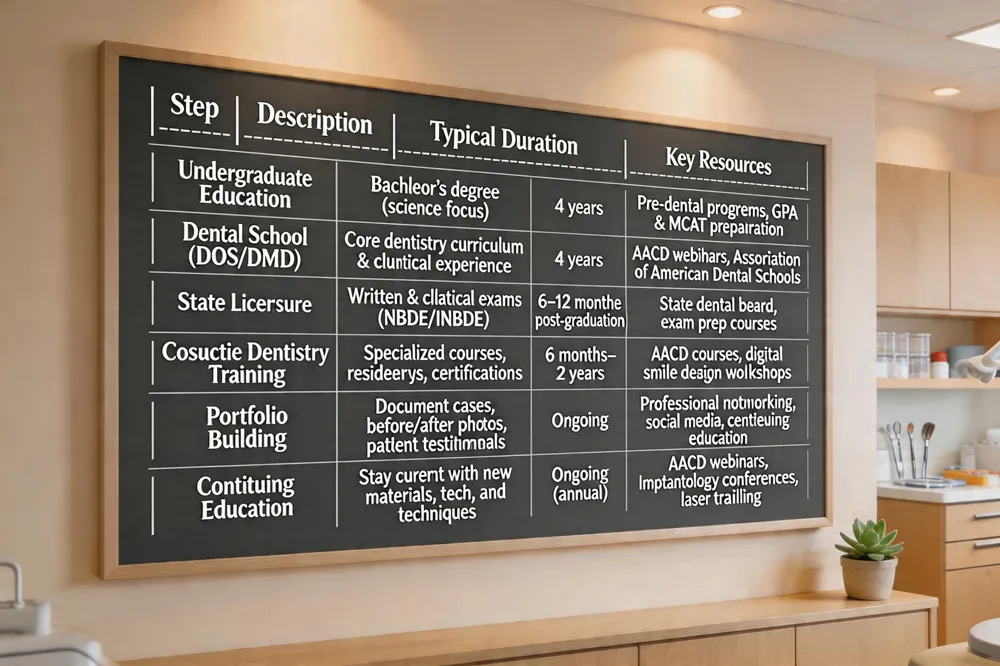 Step
Description
Typical Duration
Key Resources
Undergraduate
Education
Bachleor's degree
(science focus)
4 years
Pre-dental progrems, GPA
& MCAT prepairation
Dental School
(DOS/DMD)
Core dentistry curriculum
& cluntical experience
4 years
AACD webihars, Assoriation
of American Dental Schools
State Licersure
Written & cllatical exams
(NBDE/INBDE)
6–12 monthe
post-graduation
State dental beard,
exam prep courses
Cosuctie Dentistry
Training
Specialized courses,
resideerys, certifications
6 months–
2 years
AACD courses, digital
smile design wolkshops
Portfolio
Building
Document cases,
before/after photos,
patient testithmnals
Ongoing
Professional notworking,
social media, centieuing
education
Contituing
Education
Stay curent with new
materials, tech, and
techniques
Ongoing
(annual)
AACD webinars,
Imptantology conferences,
laser trailling